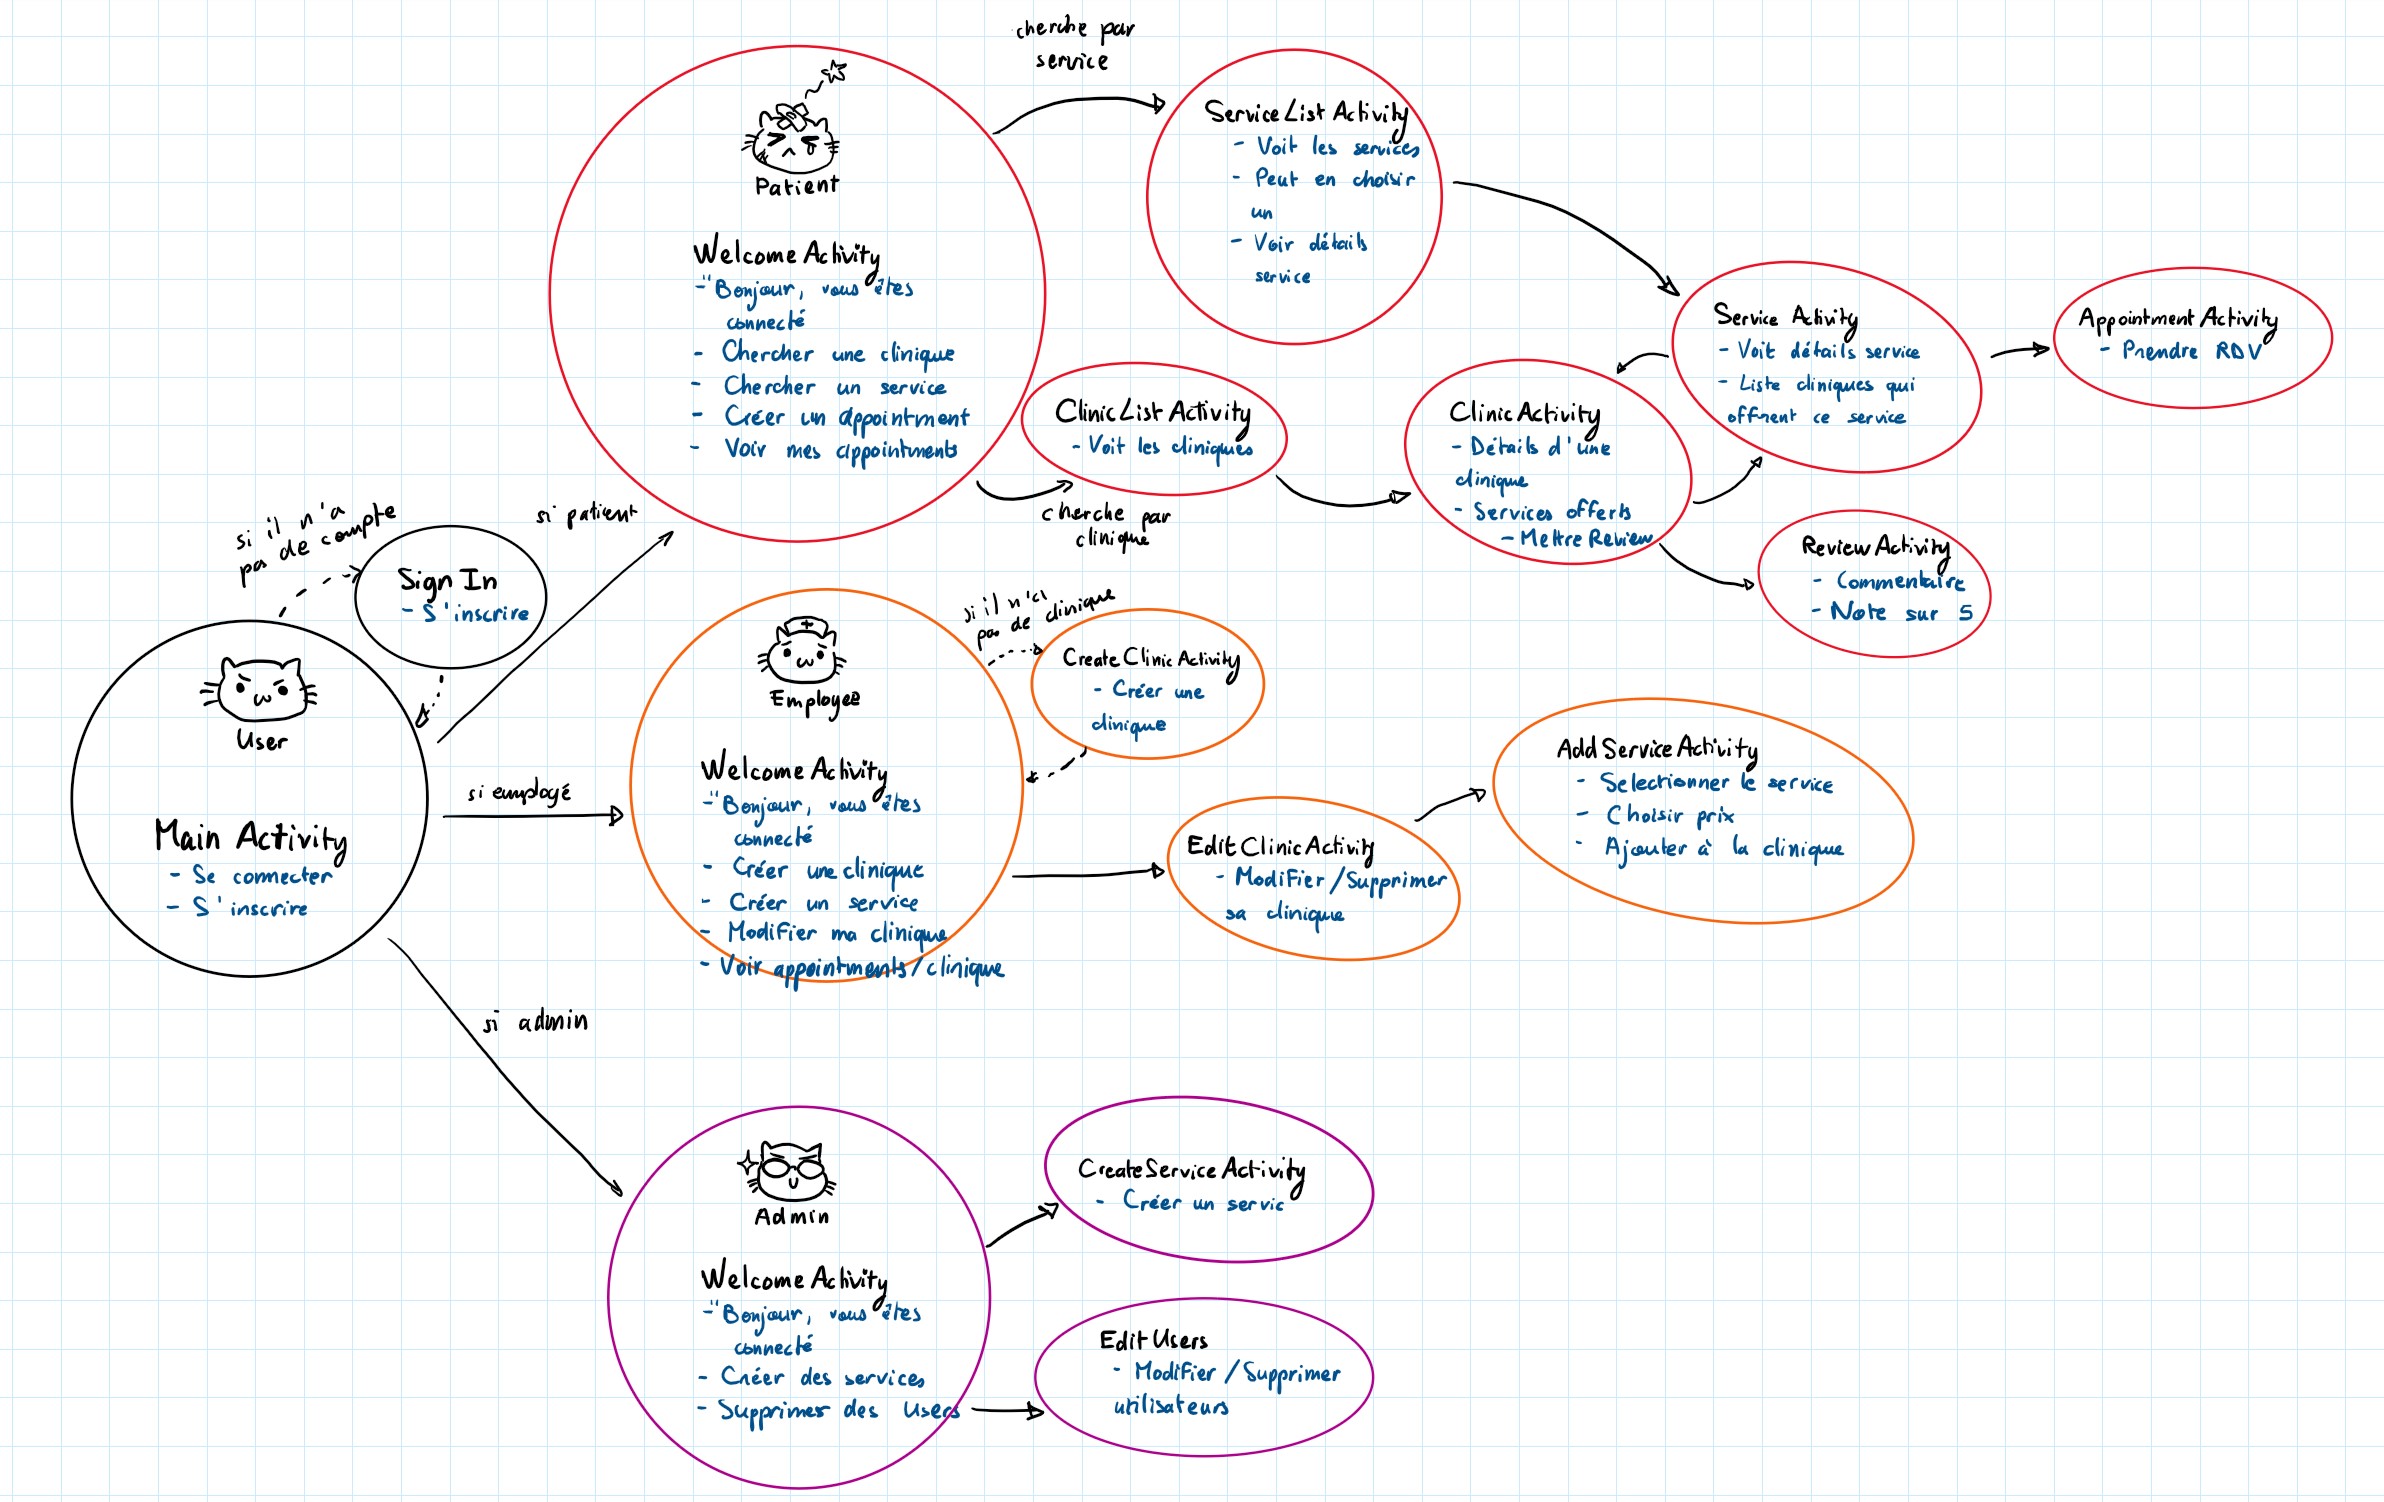 cherche par
service
Patient
Welcome Activity
-"Bonjour, vous êtes
connecté
- Chercher une clinique
- Chercher un service
- Créer un appointment
- Voir mes appointments
Service List Activity
- Voit les services
- Peut en choisir
un
- Voir détails
service
Service Activity
- Voit détails service
- Liste cliniques qui
offrent ce service
Appointment Activity
- Prendre RDV
Clinic List Activity
- Voit les cliniques
cherche par
clinique
Clinic Activity
- Détails d'une
clinique
- Services offerts
- Mettre Review
Review Activity
- Commentaire
- Note sur 5
si il n'a
pas de compte
Sign In
- S'inscrire
si patient
User
Main Activity
- Se connecter
- S'inscrire
si employé
si admin
Employee
Welcome Activity
-"Bonjour, vous êtes
connecté
- Créer une clinique
- Créer un service
- Modifier ma clinique
- Voir appointments/clinique
si il n'a
pas de clinique
Create Clinic Activity
- Créer une
clinique
Edit Clinic Activity
- Modifier/Supprimer
sa clinique
Add Service Activity
- Selectionner le service
- Choisir prix
- Ajouter à la clinique
Admin
Welcome Activity
-"Bonjour, vous êtes
connecté
- Créer des services
- Supprimer des Users
Create Service Activity
- Créer un servic
Edit Users
- Modifier/Supprimer
utilisateurs